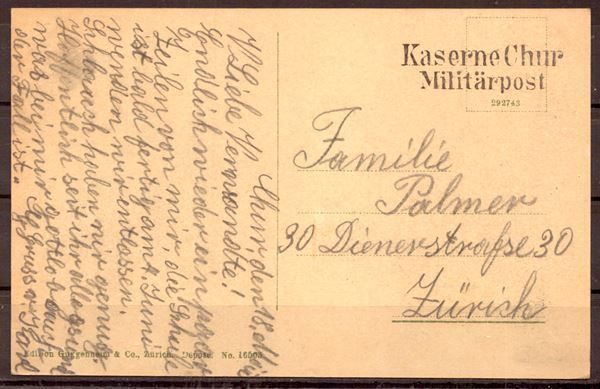 Kaserne Chur
Militärpost
292743
Familie
Palmer
30 Dienerstraße 30
Zürich
Chur, den 18. Mai
Liebe Verwandte!
Endlich wieder ein paar
Zeilen von mir, die Schule
ist bald fertig am 4. Juni
werden wir entlassen.
Schlauch haben wir genug.
Hoffentlich seit ihr alle gesund
was bei mir gottlob auch
der Fall ist. Gruss
Edition Guggenheim & Co., Zürich. Dépose. No. 16503